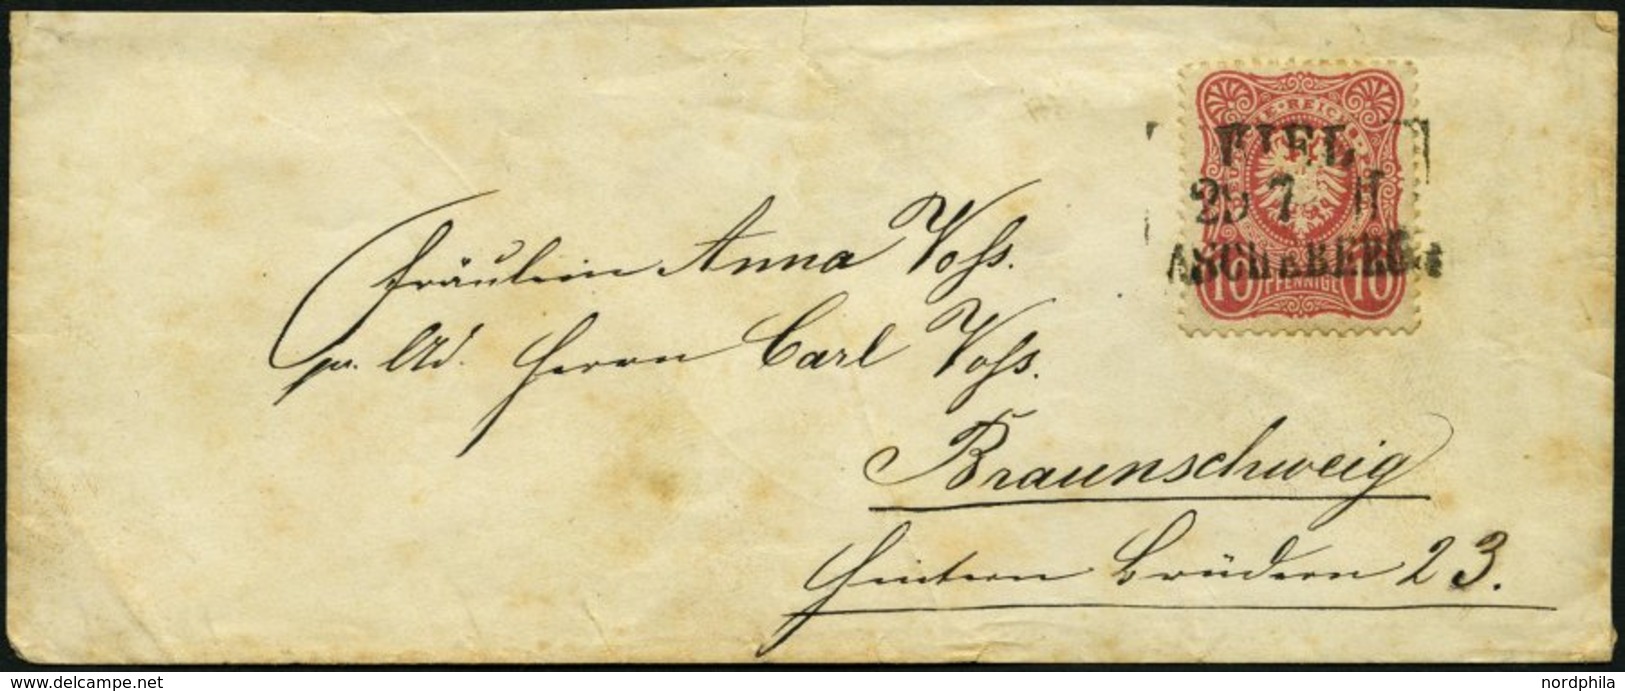 Fräulein Anna Voss.
pr. Ad. Herrn Carl Voss.
Braunschweig
Hintern Brüdern 23.
REICHS
KIEL
7 II
ASCHEBERG
10 PFENNIGE 10
www.delcampe.net
nordphila